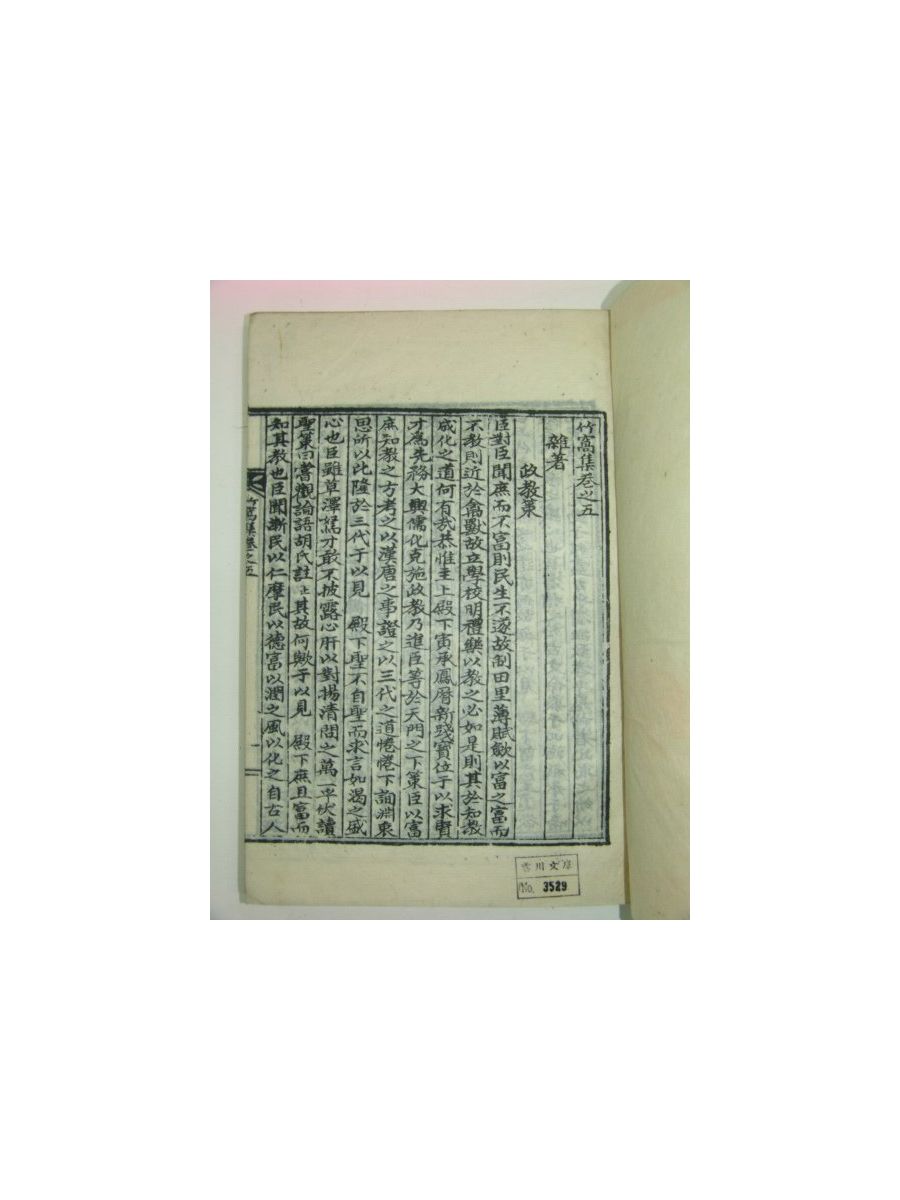 竹窩集卷之五
雜著
政教策
臣對臣聞庶而不富則民生不遂故制田里薄賦斂以富之富而
不教則近於禽獸故立學校明禮樂以教之必如是則其於知教
成化之道何有哉恭惟主上殿下寅承鳳曆新踐寶位于以求賢
才爲先務大興儒化克施政教乃進臣等於天門之下策臣以富
庶知教之方考之以漢唐之事證之以三代之道惓惓下詢淵衷
思所以比隆於三代于以見 殿下聖不自聖而求言如渴之盛
心也臣雖草澤駑才敢不披露心肝以對揚清問之萬一乎伏讀
聖策曰嘗觀論語胡氏註止其故何歟于以見 殿下庶且富而
知其教也臣聞漸民以仁摩民以德富以潤之風以化之自古人
竹窩集卷之五
一
川文庫
No. 3529